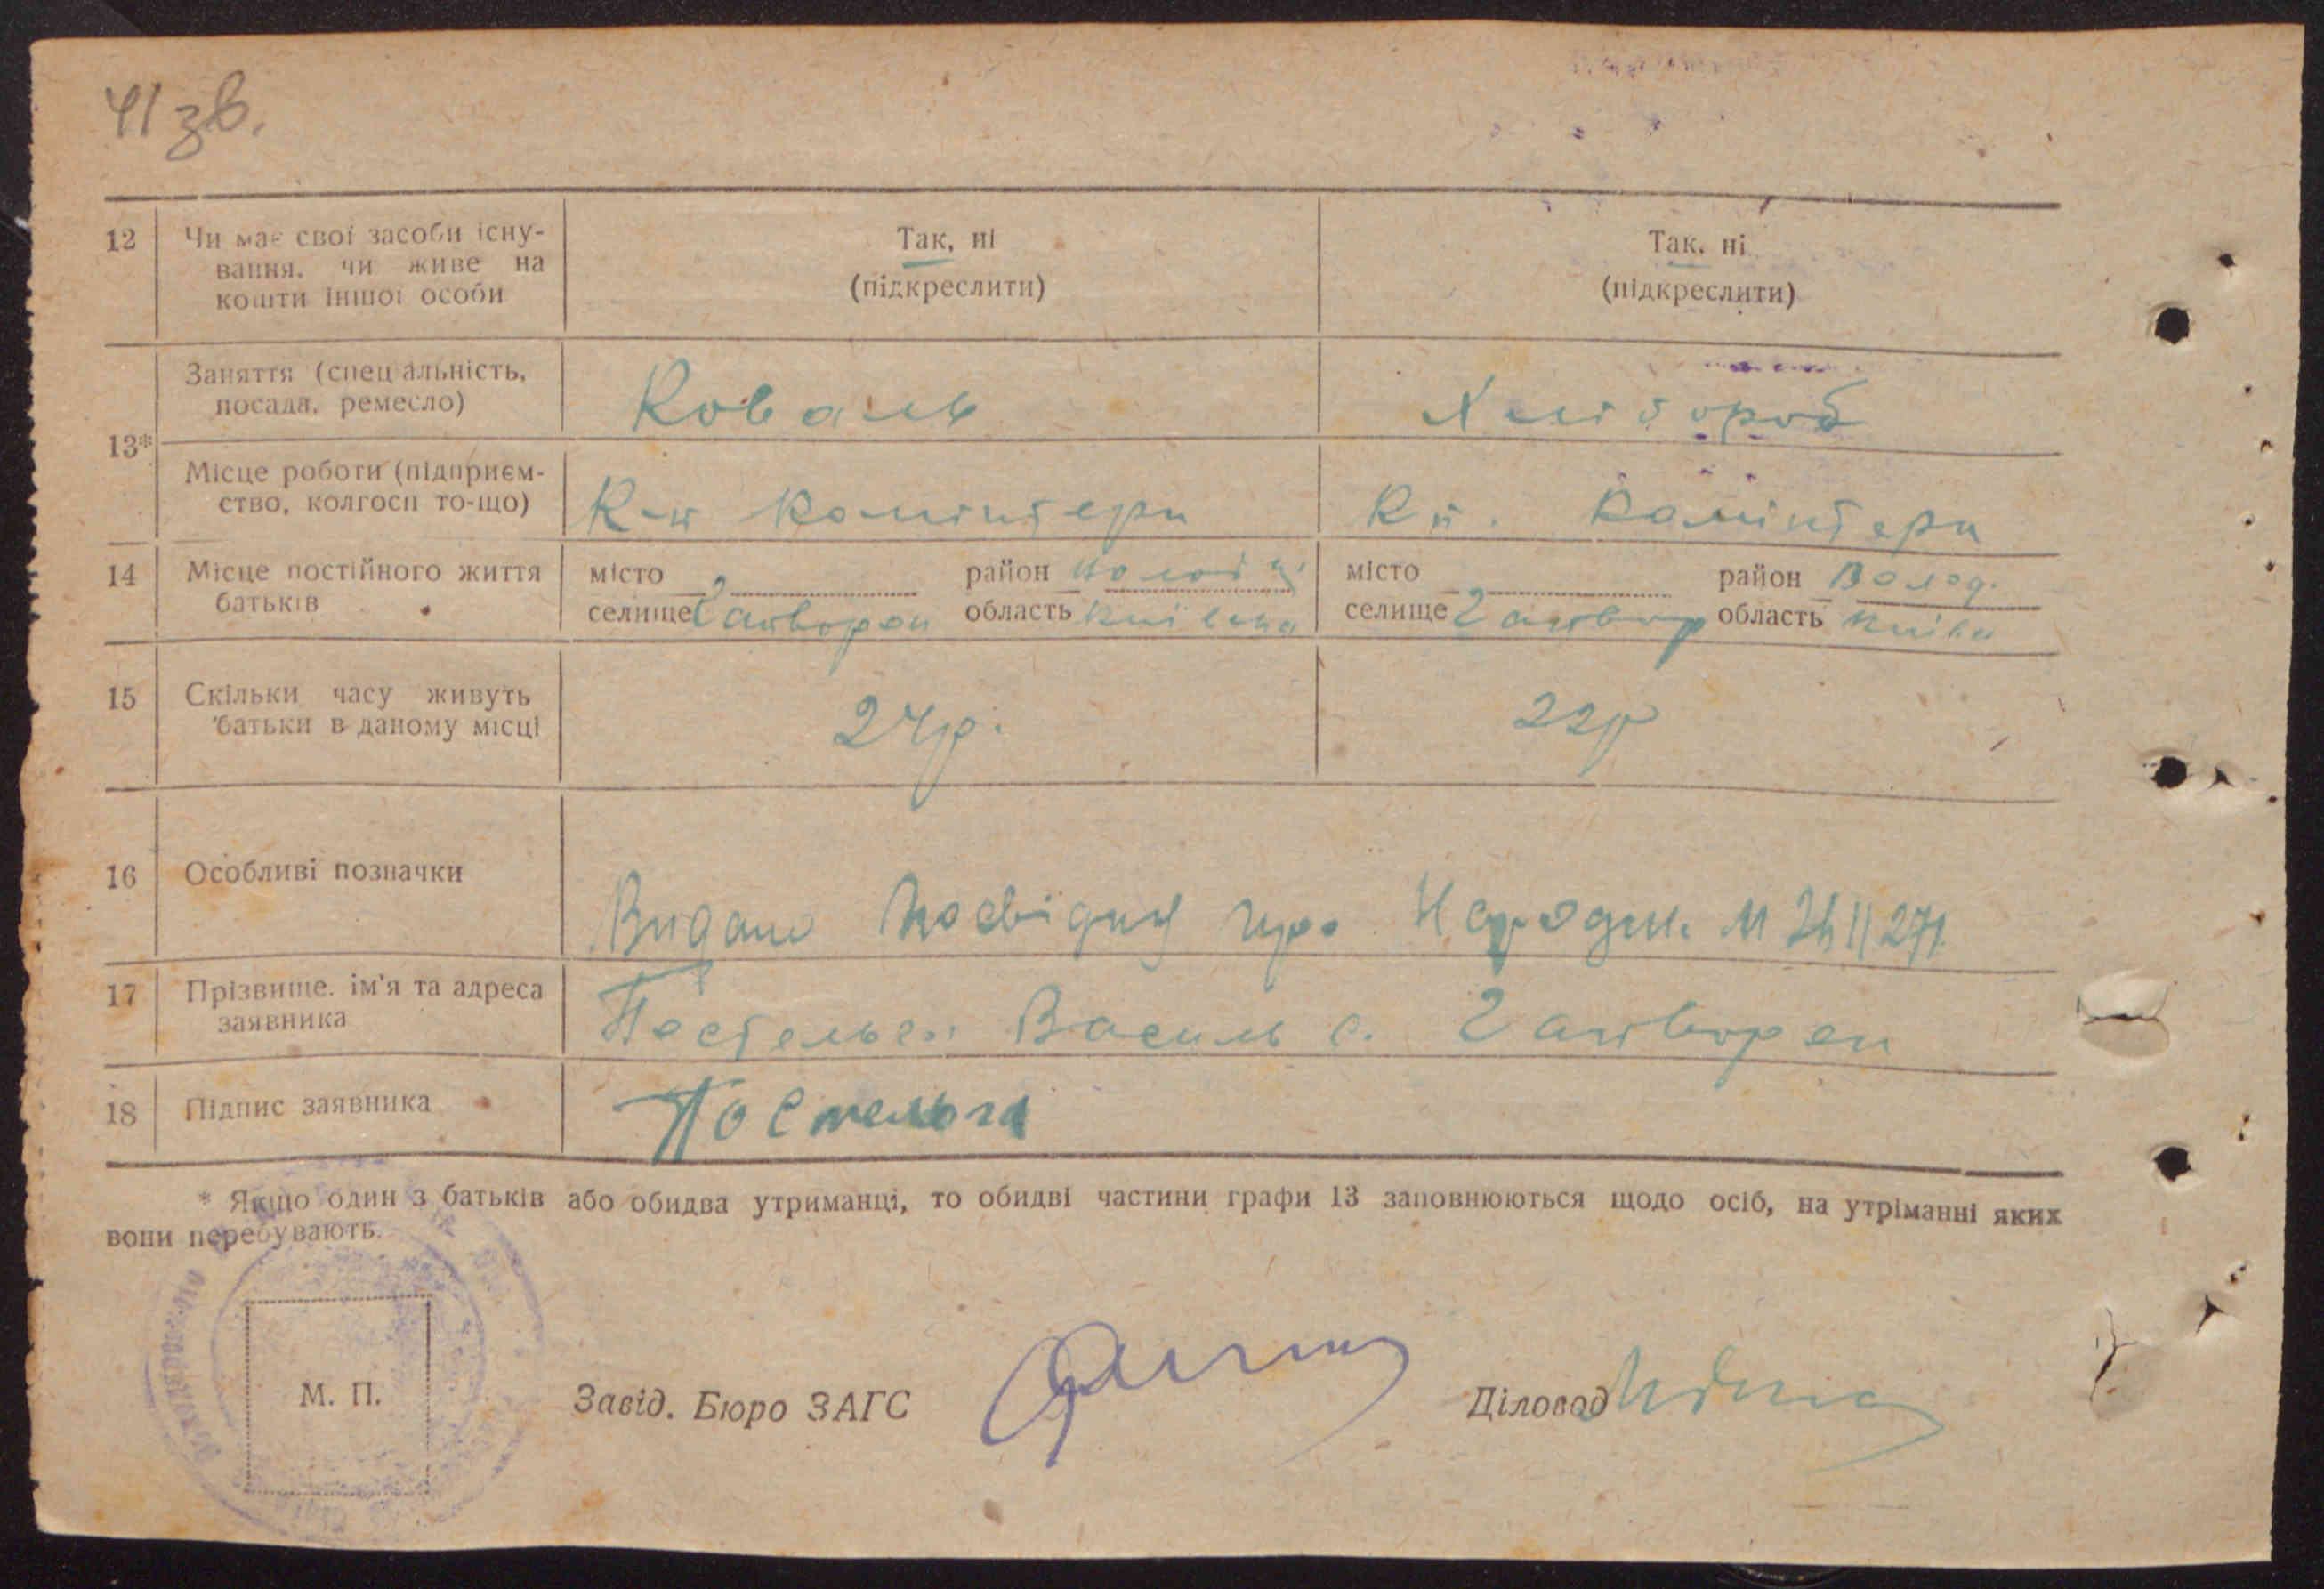 41 зв.
12 Чи має свої засоби існу- Так, ні Так, ні
вання, чи живе на (підкреслити) (підкреслити)
кошти іншої особи
13* Заняття (спеціальність, Коваль Хлібороб
посада, ремесло)
Місце роботи (підприєм- К-п Комінтерн Кп. Комінтерн
ство, колгосп то-що)
14 Місце постійного життя місто район місто район Волод.
батьків селище Гайворон область селище Гайвор область
15 Скільки часу живуть 24р. 22р
батьки в даному місці
16 Особливі позначки Видано про Народж.
17 Прізвище, ім'я та адреса Василь с. Гайворон
заявника
18 Підпис заявника Постельга
* Якщо один з батьків або обидва утриманці, то обидві частини графи 13 заповнюються щодо осіб, на утріманні яких
вони перебувають.
М. П. Завід. Бюро ЗАГС Діловод